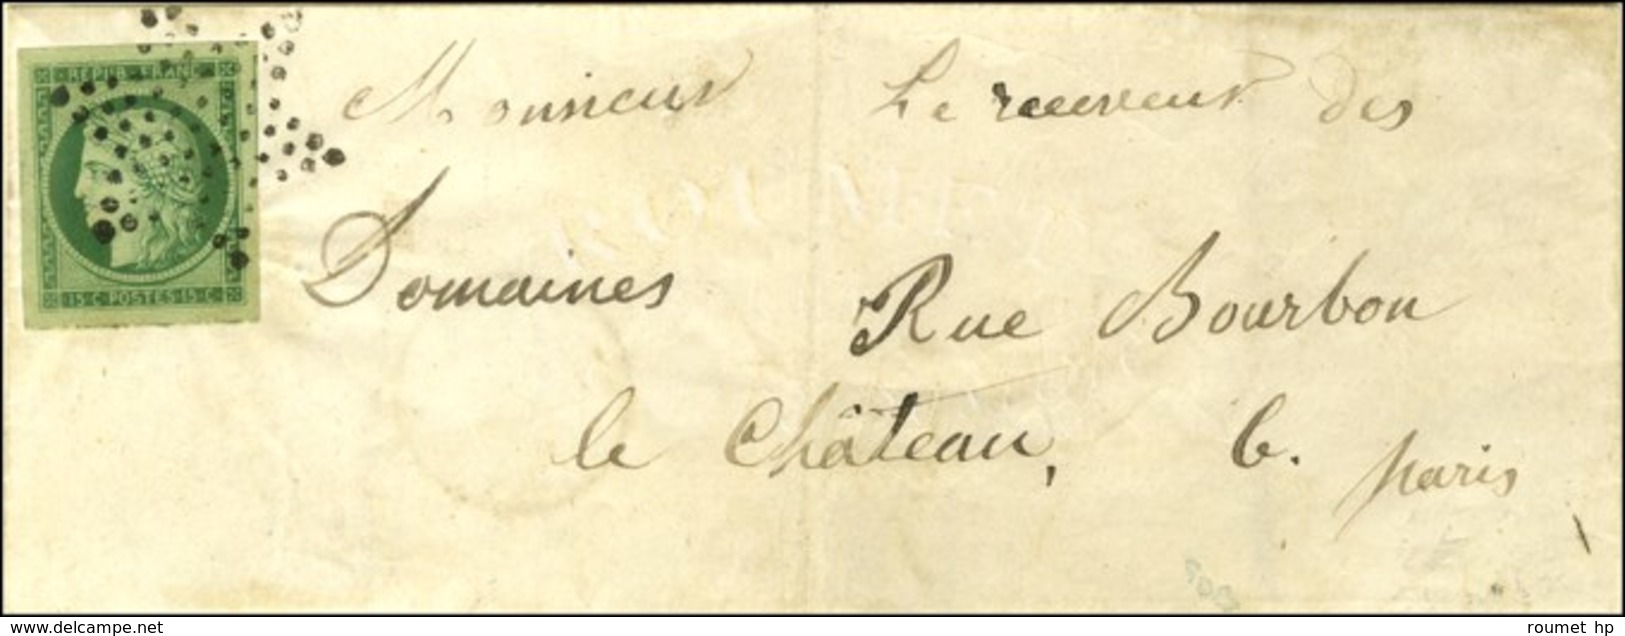 REPUB. FRANC.
15 C. POSTES 15 C.
Monsieur Le receveur des
Domaines Rue Bourbon
le Château, 6. paris
www.delcampe.net
roumet hp